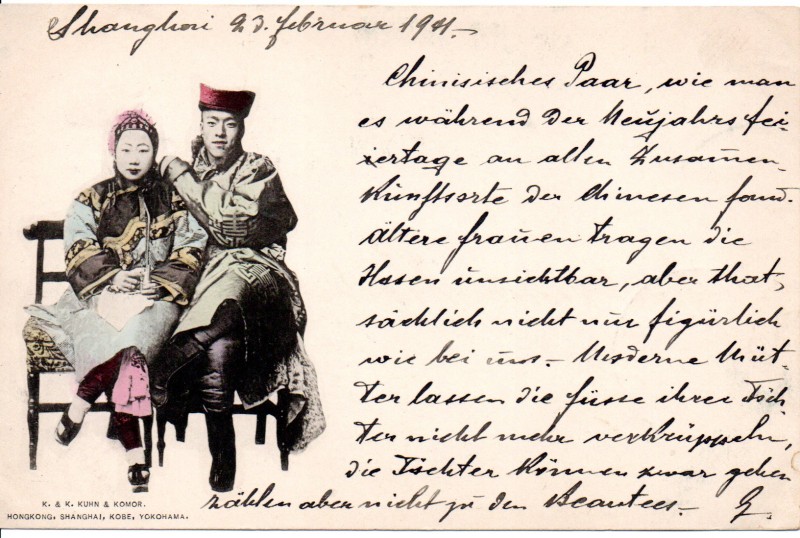 Shanghai 23. februar 1911.-
Chinisisches Paar, wie man
es während der Neujahrsfei-
ertage an allen Zusamen-
kunftsorte der Chinesen fand.
Ältere frauen tragen die
Hosen unsichtbar, aber that-
sächlich nicht nur figürlich
wie bei uns.- Moderne Müt-
ter lassen die füsse ihrer Töch
ter nicht mehr verkrüppeln,
die Töchter können zwar gehen
zählen aber nicht zu den Beautees.- G.
K. & K. KUHN & KOMOR.
HONGKONG, SHANGHAI, KOBE, YOKOHAMA.